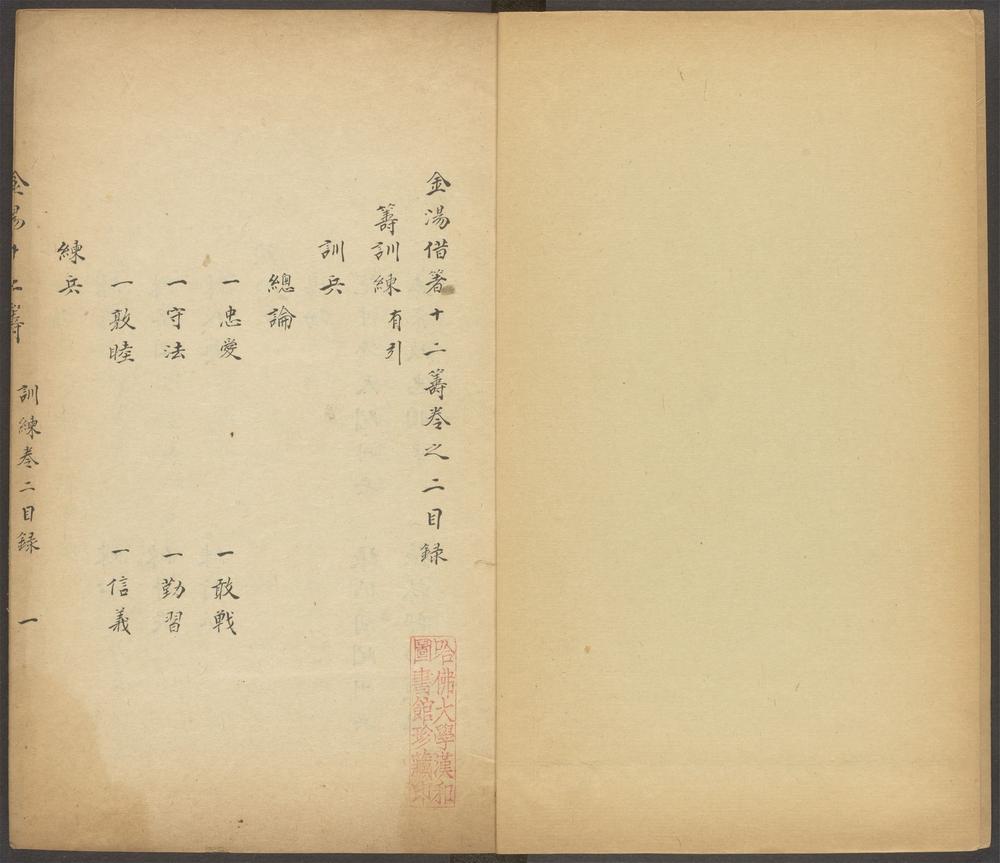 金湯借箸十二籌卷之二目錄
籌訓練有引
訓兵
總論
一忠愛 一敢戰
一守法 一勤習
一敦睦 一信義
練兵
金湯十二籌 訓練卷二目録 一
哈佛大學漢和
圖書館珍藏印